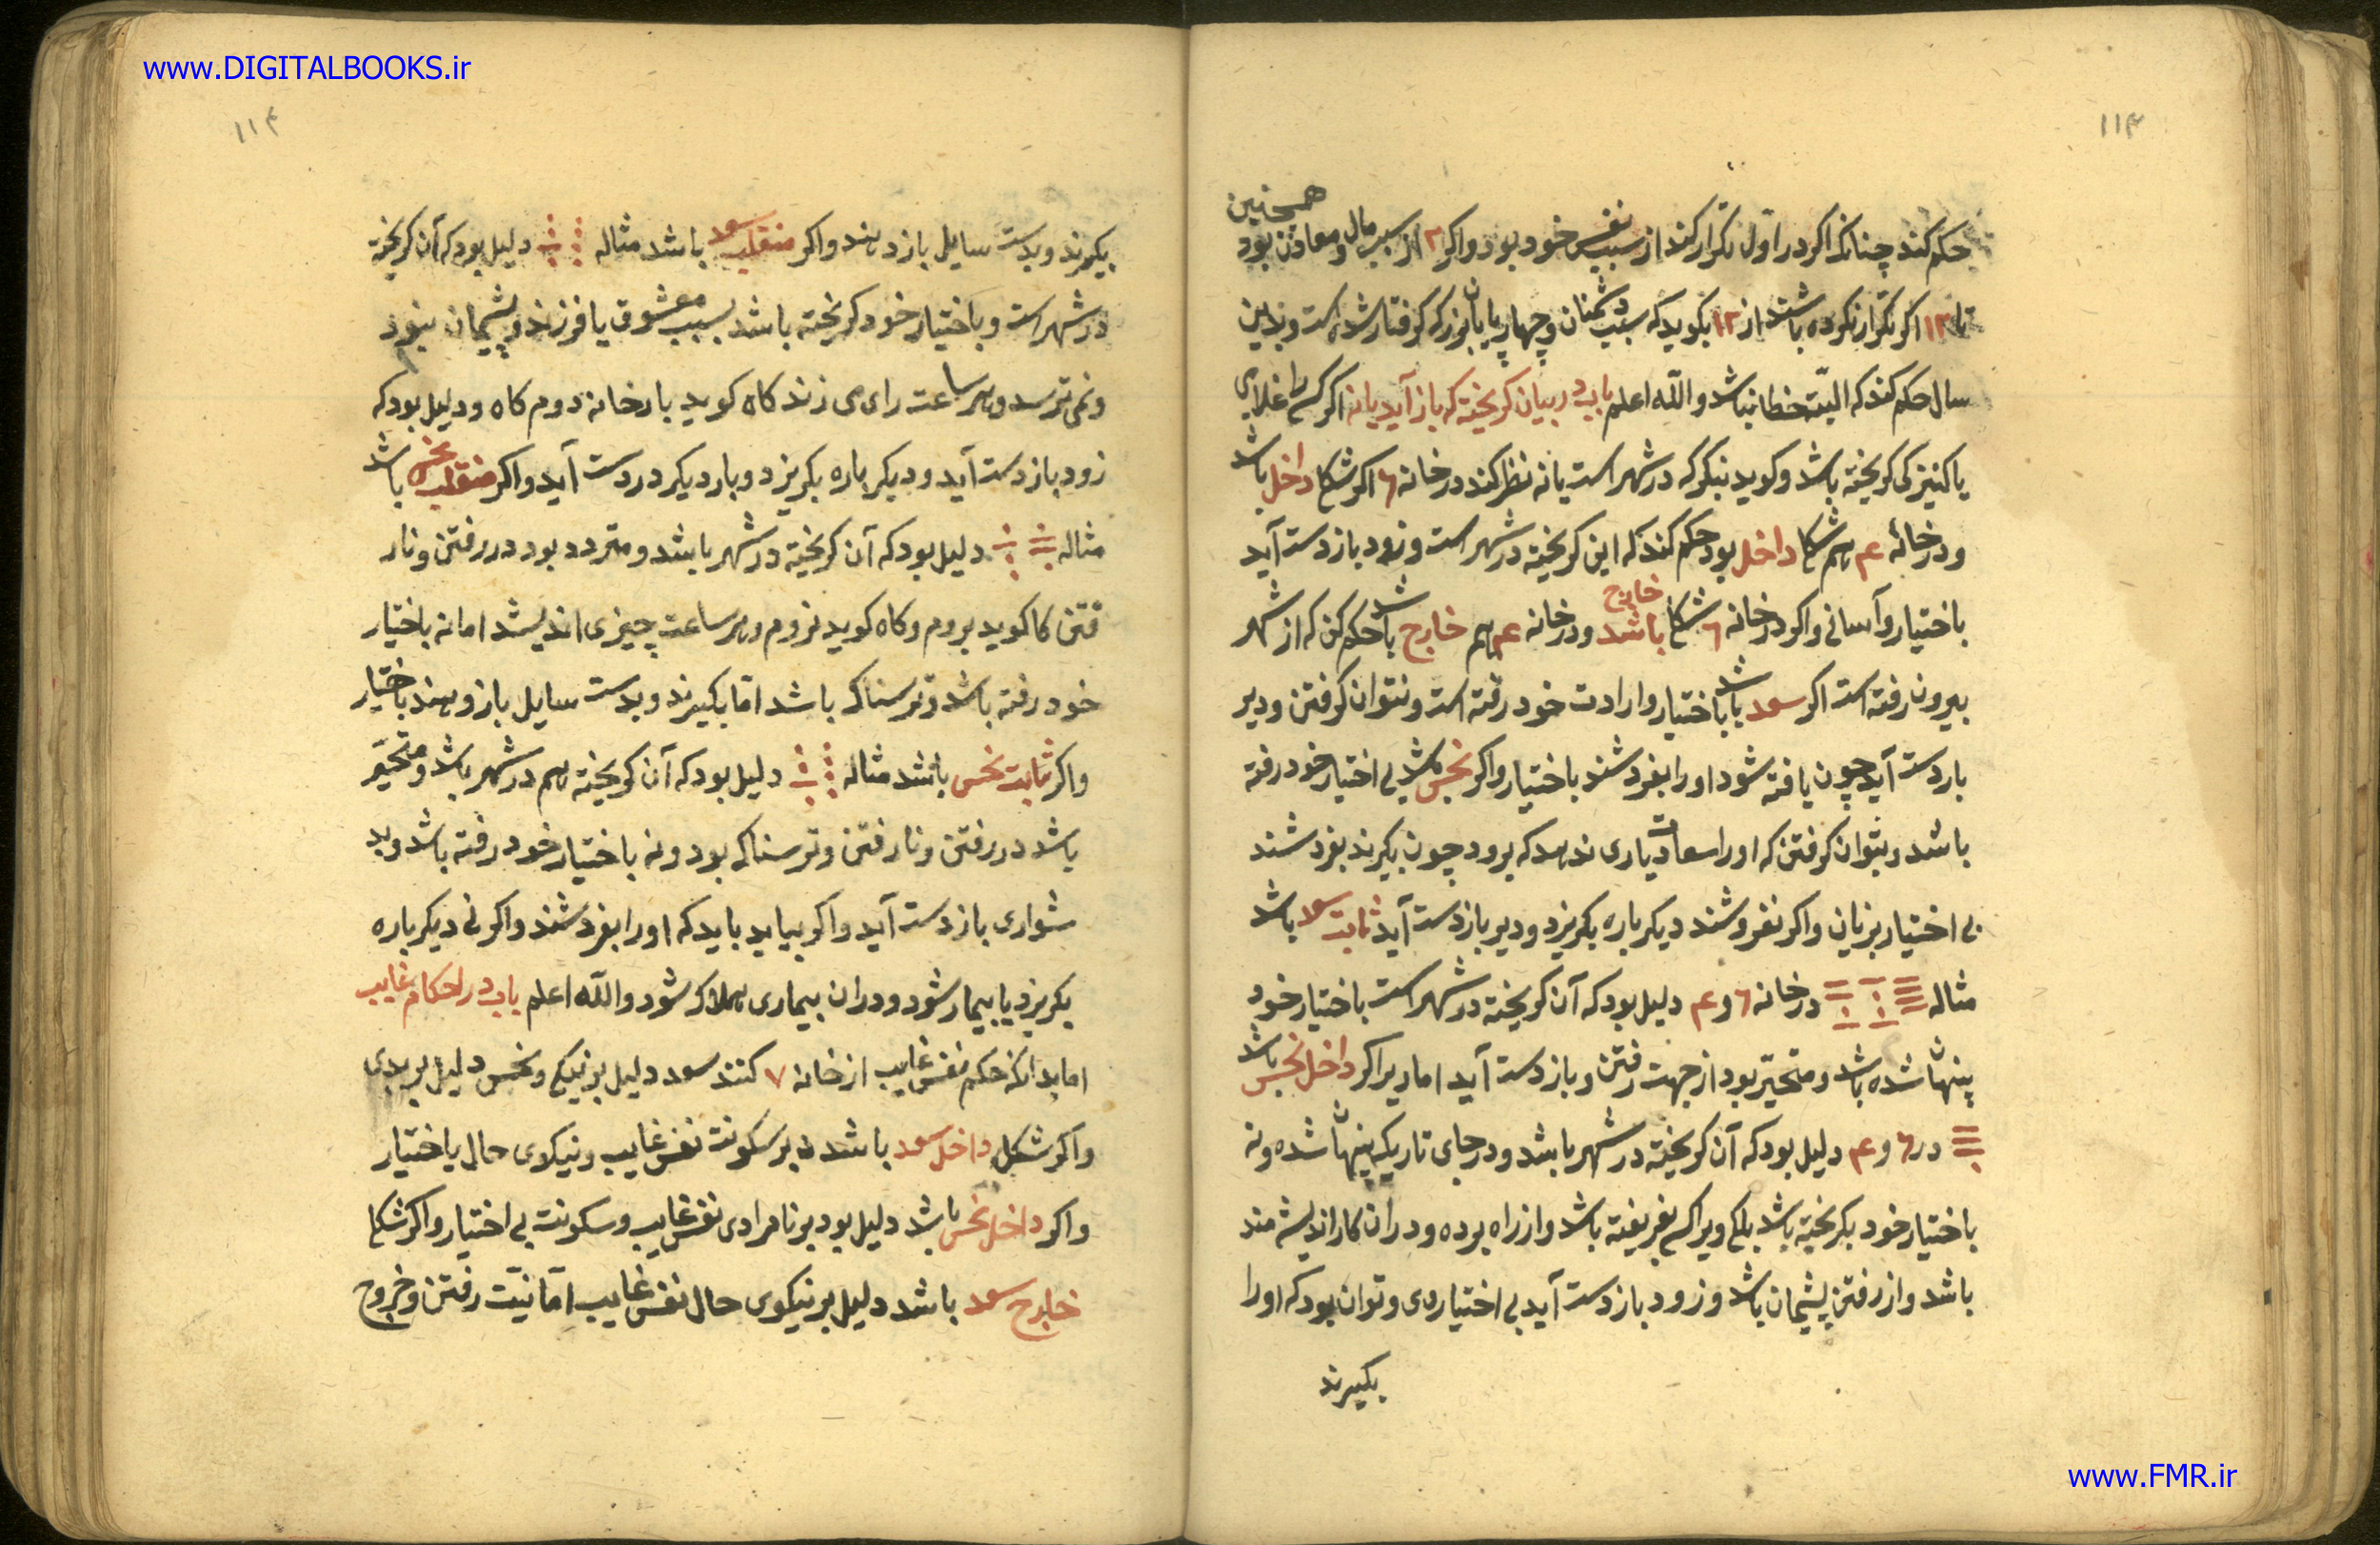 www.DIGITALBOOKS.ir
۱۱۳
همچنین
حکم کند چنانکه اکر در اول تکرار کند از سبب نفس خود بود و اکر ۲ از سبب مال و معادن بود
تا ۱۲ اکر تکرار نکرده باشند از ۱۲ بکوید که بسبب دشمنان و چهارپایان بزرک کرفتار شده است و بدین
سال حکم کند که البته خطا نباشد والله اعلم باب در بیان کریخته که باز آید یا نه اکر کسی را غلامی
یا کنیزکی کریخته باشد و کوید بنکر که در شهر است یا نه نظر کند در خانه ۶ اکر شکل داخل باشد
و در خانهٔ ۴ هم شکل داخل بود حکم کند که این کریخته در شهر است و زود باز دست آید
باختیار و آسانی و اکر در خانه ۶ شکل خارج باشد و در خانه ۴ هم خارج باشد حکم کن که از شهر
بیرون رفته است اکر سعد باشد باختیار و ارادت خود رفته است و نتوان کرفتن و دیر
باز دست آید چون یافته شود او را بفروشند باختیار و اکر نحس باشد بی اختیار خود رفته
باشد و بتوان کرفتن که او را سعادت یاری ندهد که برود چون بکیرند بفروشند
بی اختیار بزیان و اکر نفروشند دیکر باره بکریزد و دیر باز دست آید ثابت سعد باشد
مثاله در خانه ۶ و ۴ دلیل بود که آن کریخته در شهر است باختیار خود
پنهان شده باشد و متحیر بود از جهت رفتن و باز دست آید اما دیر اکر داخل نحس باشد
در ۶ و ۴ دلیل بود که آن کریخته در شهر باشد و در جای تاریک پنهان شده و نه
باختیار خود بکریخته باشد بلکه ویرا کسی بفریفته باشد و از راه برده و در ان کار اندیشه مند
باشد و از رفتن پشیمان باشد و زود باز دست آید بی اختیار وی و توان بود که او را
بکیرند
۱۱۴
بکیرند و بدست سایل باز دهند و اکر منقلب سعد باشد مثاله دلیل بود که آن کریخته
در شهر است و باختیار خود کریخته باشد بسبب معشوق یا فرزند و پشیمان نبود
و نمی ترسد و هر ساعت رای می زند کاه کوید باز خانه روم کاه و دلیل بود که
زود باز دست آید و دیکر باره بکریزد و بار دیکر در دست آید و اکر منقلب نحس باشد
مثاله دلیل بود که آن کریخته در شهر باشد و متردد بود در رفتن و نار
فتن کا کوید بروم و کاه کوید نروم و هر ساعت چیزی اندیشد اما نه باختیار
خود رفته باشد و ترسناک باشد اما بکیرند و بدست سایل باز دهند باختیار
و اکر ثابت نحس باشد مثاله دلیل بود که آن کریخته هم در شهر باشد و متحیر
باشد در رفتن و نارفتن و ترسناک بود و نه باختیار خود رفته باشد و بد
شواری باز دست آید و اکر بیاید باید که او را بفروشند و اکر نی دیکر باره
بکریزد یا بیمار شود و در ان بیماری هلاک شود والله اعلم باب در احکام غایب
اما بدانکه حکم نفس غایب از خانه ۷ کنند سعد دلیل بر نیکی و نحس دلیل بر بدی
و اکر شکل داخل سعد باشد بر سکونت نفس غایب و نیکوی حال باختیار
و اکر داخل نحس باشد دلیل بود بر نامرادی نفس غایب و سکونت بی اختیار و اکر شکل
خارج سعد باشد دلیل بر نیکوی حال نفس غایب اما نیت رفتن و خروج
www.FMR.ir